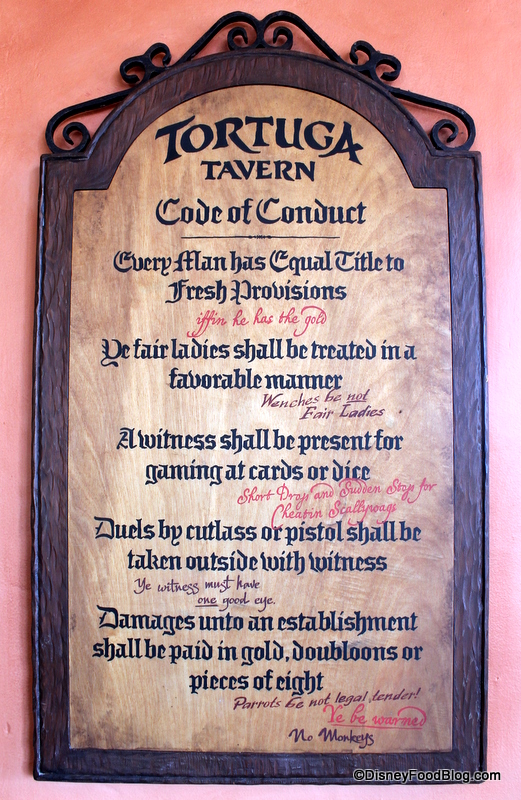 TORTUGA
TAVERN
Code of Conduct
Every Man has Equal Title to
Fresh Provisions
iffin he has the gold
Ye fair ladies shall be treated in a
favorable manner
Wenches be not
Fair Ladies.
A witness shall be present for
gaming at cards or dice
Short Drop and Sudden Stop for
Cheatin Scallywags
Duels by cutlass or pistol shall be
taken outside with witness
Ye witness must have
one good eye.
Damages unto an establishment
shall be paid in gold, doubloons or
pieces of eight
Parrots be not legal tender!
Ye be warned
No Monkeys
©DisneyFoodBlog.com